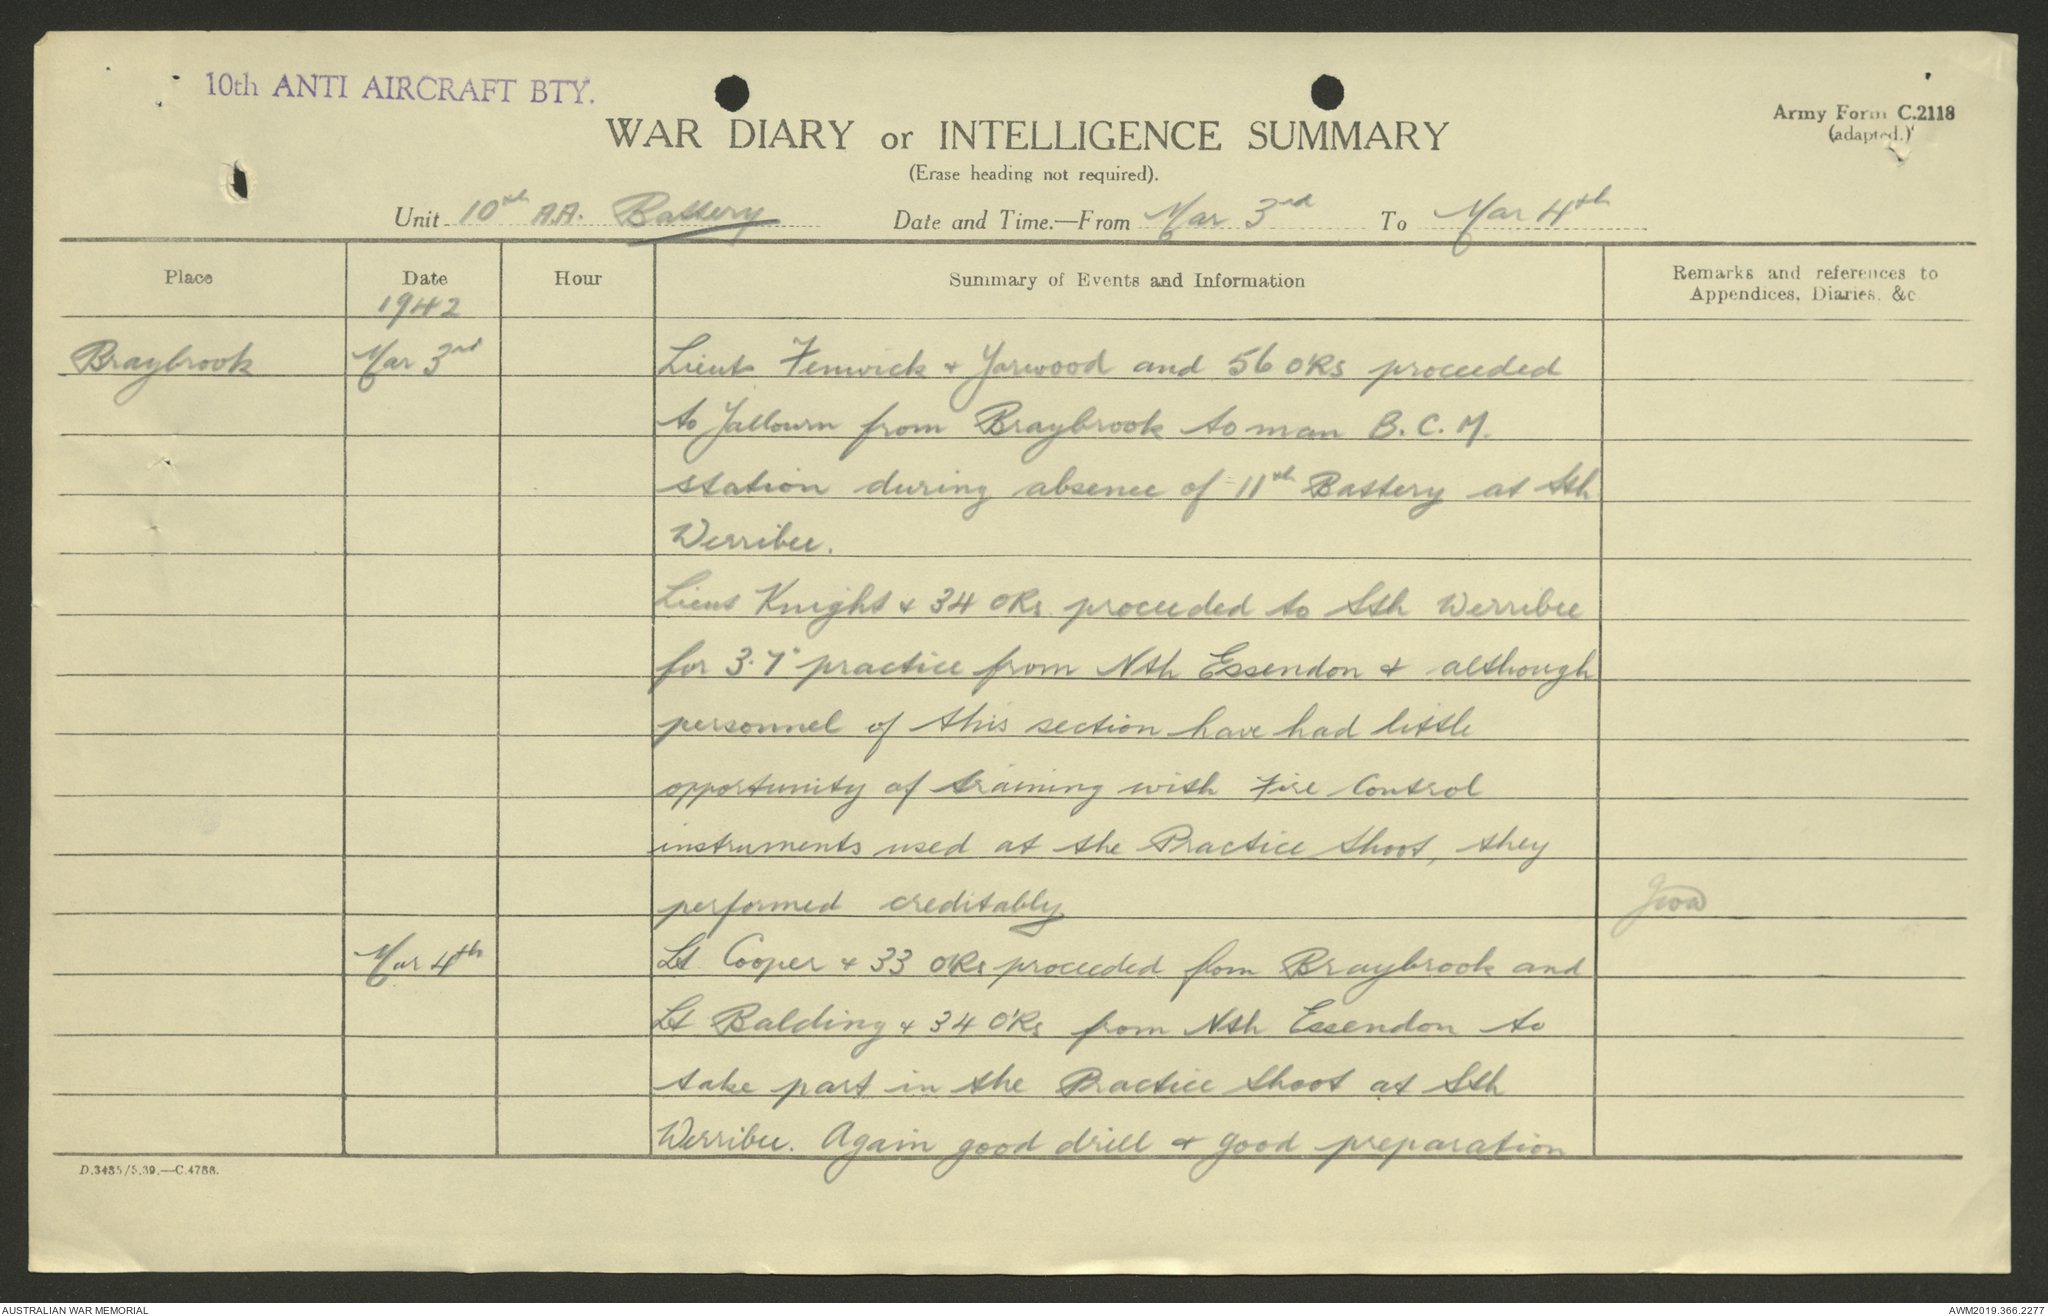 10th ANTI AIRCRAFT BTY.
Army Form C.2118
(adapted.)
WAR DIARY or INTELLIGENCE SUMMARY
(Erase heading not required).
Unit 10th A.A. Battery Date and Time.—From Mar 3rd To Mar 4th
Place Date Hour Summary of Events and Information Remarks and references to
Appendices, Diaries, &c
1942
Braybrook Mar 3rd Lieuts Fenwick & Yarwood and 56 ORs proceeded
to Yallourn from Braybrook to man B.C.M.
station during absence of 11th Battery at Sth
Werribee.
Lieut Knight & 34 ORs proceeded to Sth Werribee
for 3.7" practice from Nth Essendon & although
personnel of this section have had little
opportunity of training with Fire Control
instruments used at the Practice Shoot, they
performed creditably
Mar 4th Lt Cooper & 33 ORs proceeded from Braybrook and
Lt Balding & 34 O'Rs from Nth Essendon to
take part in the Practice Shoot at Sth
Werribee. Again good drill & good preparation
D.3485/5.39.—C.4788.
AUSTRALIAN WAR MEMORIAL
AWM2019.366.2277